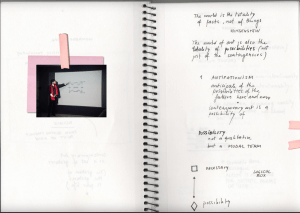 The world is the totality
of facts, not of things
WITTGENSTEIN
The world of art is also the
totality of possibilities (not
just of the contingencies)
1 ANTICIPATIONISM
anticipate
possibilities of the
future here and now
contemporary art is a
possibility of
Possibility
not a
but a MODAL TERM
necessary
possibility